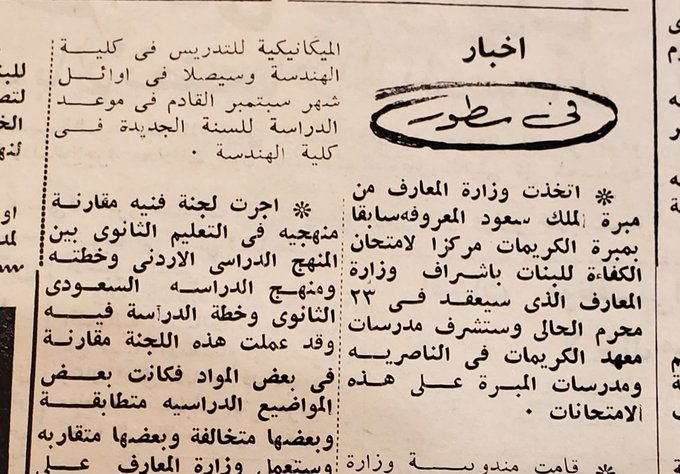 اخبار
فى سطور
* اتخذت وزارة المعارف من
مبرة الملك سعود المعروفه سابقا
بمبرة الكريمات مركزا لامتحان
الكفاءة للبنات باشراف وزارة
المعارف الذى سيعقد فى ٢٣
محرم الحالى وستشرف مدرسات
معهد الكريمات فى الناصريه
ومدرسات المبرة على هذه
الامتحانات ٠
* قامت مندوبية وزارة
الميكانيكية للتدريس فى كلية
الهندسة وسيصلا فى اوائل
شهر سبتمبر القادم فى موعد
الدراسة للسنة الجديدة فى
كلية الهندسة ٠
* اجرت لجنة فنيه مقارنة
منهجيه فى التعليم الثانوى بين
المنهج الدراسى الاردنى وخطته
ومنهج الدراسه السعودى
الثانوى وخطة الدراسة فيه
وقد عملت هذه اللجنة مقارنة
فى بعض المواد فكانت بعض
المواضيع الدراسيه متطابقة
وبعضها متخالفة وبعضها متقاربه
وستعمل وزارة المعارف على